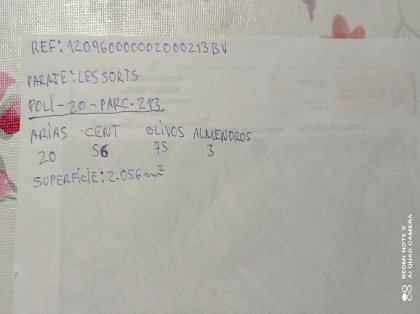 REF: 12096000002000213BV
PARAJE: LES SORTS
POLI-20-PARC-213.
ARIAS CENT OLIVOS ALMENDROS
20 56 75 3
SUPERFICIE: 2.056 m²
REDMI NOTE 9
AI QUAD CAMERA